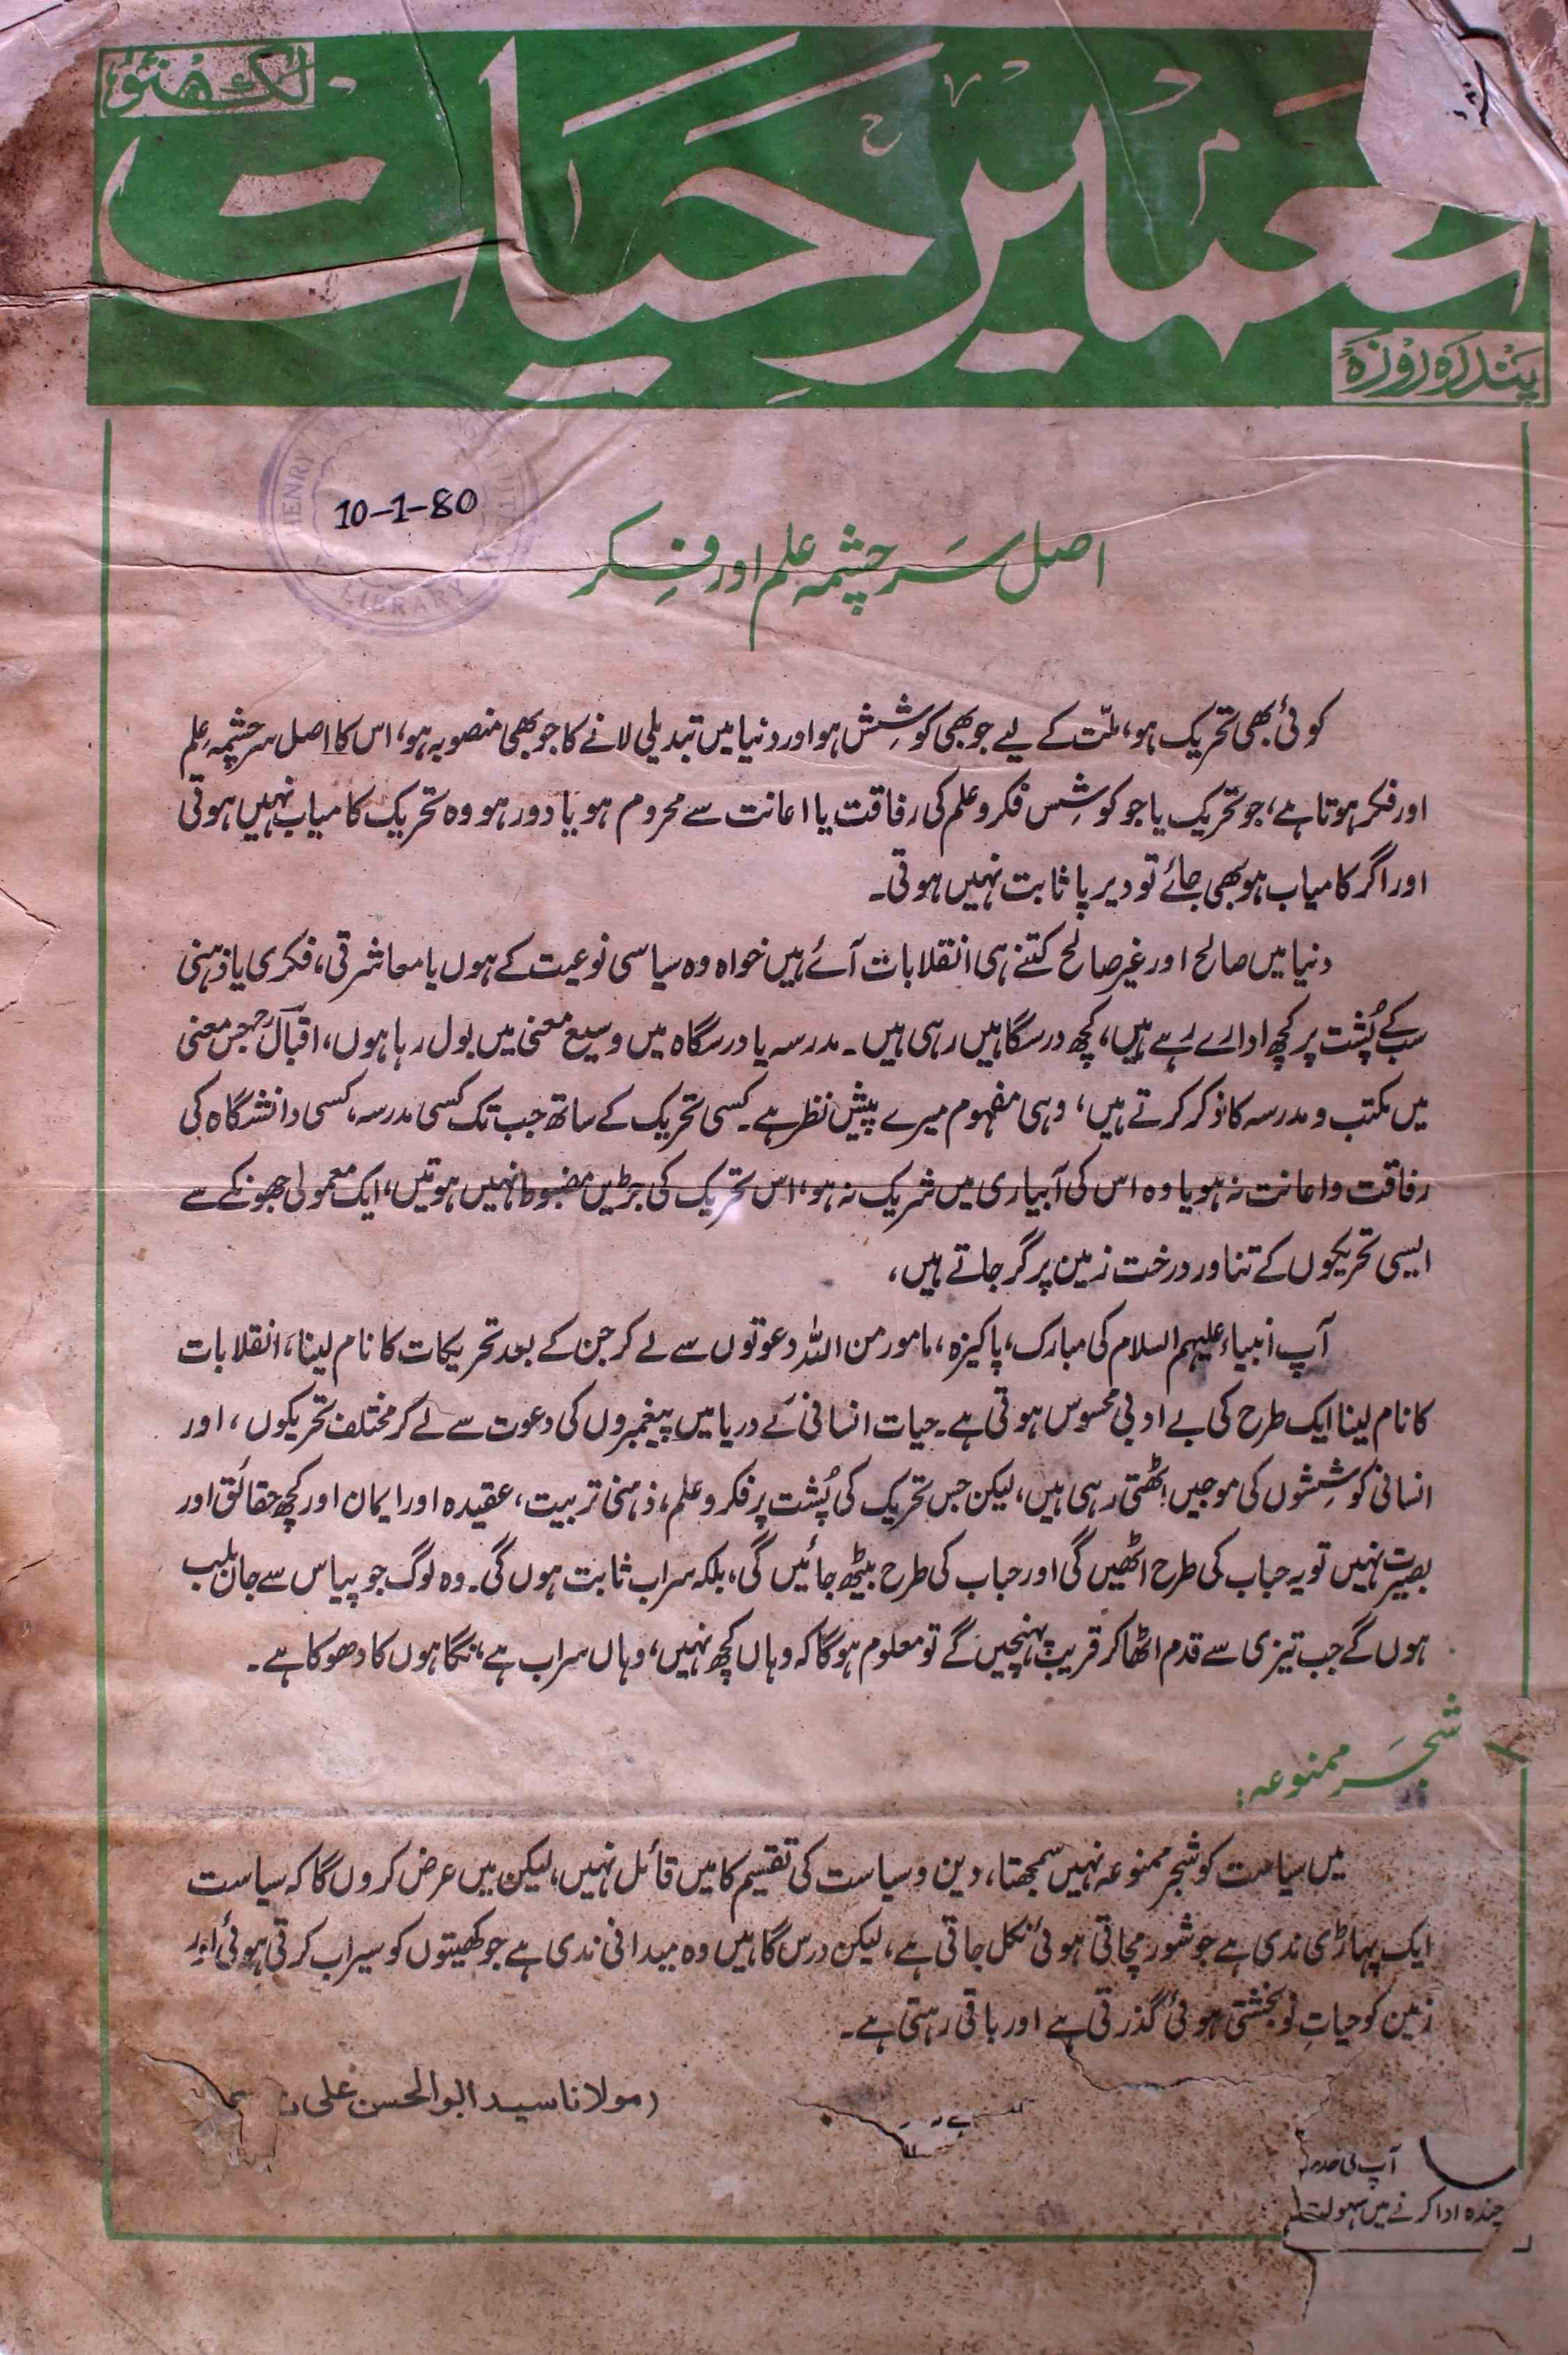 لکھنؤ
تعمیر حیات
پندرہ روزہ
HENRY
LIBRARY
10-1-80
اصل سرچشمہ علم اور فکر
کوئی بھی تحریک ہو، ملّت کے لیے جو بھی کوشِش ہو اور دنیا میں تبدیلی لانے کا جو بھی منصوبہ ہو، اس کا اصل سرچشمہ علم
اور فکر ہوتا ہے، جو تحریک یا جو کوشِس فکر و علم کی رفاقت یا اعانت سے محروم ہو یا دور ہو وہ تحریک کامیاب نہیں ہوتی
اور اگر کامیاب ہو بھی جائے تو دیر پا ثابت نہیں ہوتی۔
دنیا میں صالح اور غیر صالح کتنے ہی انقلابات آئے ہیں خواہ وہ سیاسی نوعیت کے ہوں یا معاشرتی، فکری یا ذہنی
سب کے پُشت پر کچھ ادارے رہے ہیں، کچھ درسگاہیں رہی ہیں۔ مدرسہ یا درسگاہ میں وسیع معنی میں بول رہا ہوں، اقبالؒ جس معنی
میں مکتب و مدرسہ کا ذکر کرتے ہیں، وہی مفہوم میرے پیش نظر ہے۔ کسی تحریک کے ساتھ جب تک کسی مدرسہ، کسی دانشگاہ کی
رفاقت و اعانت نہ ہو یا وہ اس کی آبیاری میں شریک نہ ہو، اس تحریک کی جڑیں مضبوط نہیں ہوتیں، ایک معمولی جھونکے سے
ایسی تحریکوں کے تناور درخت زمین پر گر جاتے ہیں،
آپ انبیاء علیہم السلام کی مبارک، پاکیزہ، مامور من اللہ دعوتوں سے لے کر جن کے بعد تحریکات کا نام لینا، انقلابات
کا نام لینا ایک طرح کی بے ادبی محسوس ہوتی ہے۔ حیات انسانی کے دریا میں پیغمبروں کی دعوت سے لے کر مختلف تحریکوں، اور
انسانی کوشِشوں کی موجیں اٹھتی رہی ہیں، لیکن جس تحریک کی پُشت پر فکر و علم، ذہنی تربیت، عقیدہ اور ایمان اور کچھ حقائق اور
بصیرت نہیں تو یہ حباب کی طرح اٹھیں گی اور حباب کی طرح بیٹھ جائیں گی، بلکہ سراب ثابت ہوں گی۔ وہ لوگ جو پیاس سے جان بلب
ہوں گے جب تیزی سے قدم اٹھا کر قریب پہنچیں گے تو معلوم ہوگا کہ وہاں کچھ نہیں، وہاں سراب ہے، نگاہوں کا دھوکا ہے۔
شجر ممنوعہ:
میں سیاست کو شجر ممنوعہ نہیں سمجھتا، دین و سیاست کی تقسیم کا میں قائل نہیں، لیکن میں عرض کروں گا کہ سیاست
ایک پہاڑی ندی ہے جو شور مچاتی ہوئی نکل جاتی ہے، لیکن درس گاہیں وہ میدانی ندی ہے جو کھیتوں کو سیراب کرتی ہوئی اور
زمین کو حیاتِ نو بخشتی ہوئی گذرتی ہے اور باقی رہتی ہے۔
(مولانا سید ابوالحسن علی
آپ کی
چندہ ادا کرنے میں سہولت